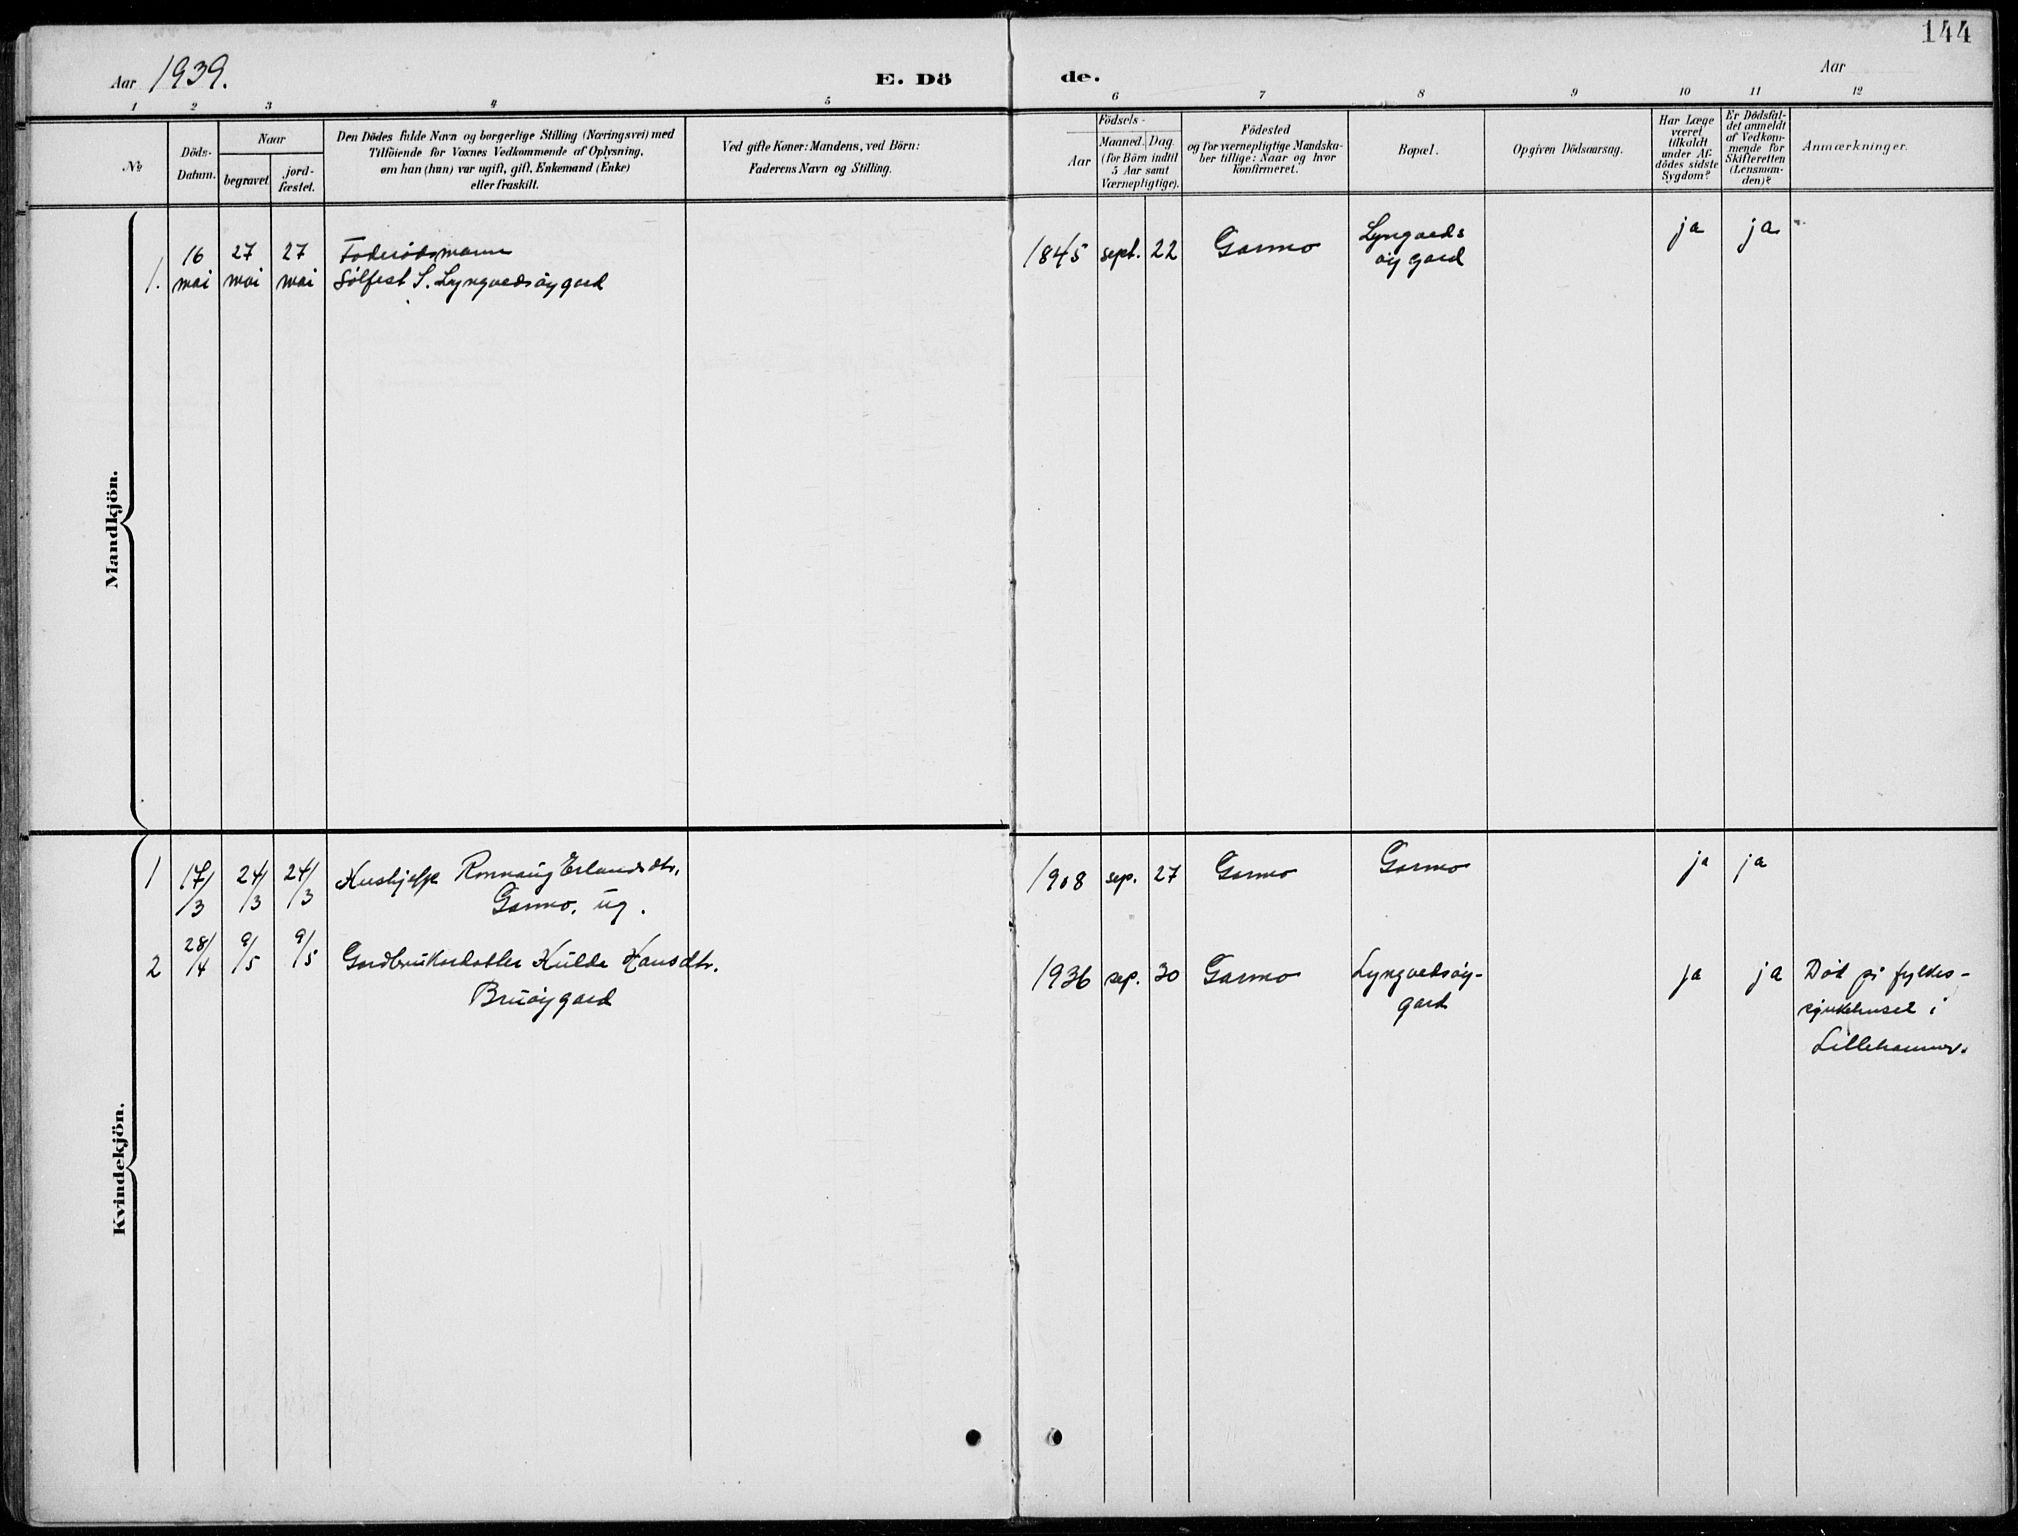 144
Aar 1939.
E. Dö
de.
Aar
1 2 3 4 5 6 7 8 9 10 11 12
No
Döds-
Datum.
Naar
begravet
jord-
fæstet.
Den Dödes fulde Navn og borgerlige Stilling (Næringsvei) med
Tilföiende for Voxnes Vedkommende af Oplysning,
om han (hun) var ugift, gift, Enkemand (Enke)
eller fraskilt.
Ved gifte Koner: Mandens, ved Börn:
Faderens Navn og Stilling.
Födsels-
Aar
Maaned.
Dag.
(for Börn indtil
5 Aar samt
Værnepligtige).
Födested
og for værnepligtige Mandska-
ber tillige: Naar og hvor
konfirmeret.
Bopæl.
Opgiven Dödsaarsag.
Har Læge
været
tilkaldt
under Af-
dödes sidste
Sygdom?
Er Dödsfal-
det anmeldt
af Vedkom-
mende for
Skifteretten
(Lensman-
den)?
Anmærkninger.
Mandkjön.
1. 16 mai 27 mai 27 mai
Foderådsmann
Sølfest S. Lyngvedsøygard
1845 sept. 22 Garmo
Lyngveds
øygard
ja ja
Kvindekjön.
1 17/3 24/3 24/3 Hushjelp Rønnaug Erlandsdtr.
Garmo, ug.
1908 sep. 27 Garmo Garmo ja ja
2 28/4 9/5 9/5 Gardbrukerdatter Hulda Hansdtr.
Bruøygard
1936 sep. 30 Garmo Lyngvedsøy-
gard
ja ja Død på fylkes-
sjukehuset i
Lillehammer.